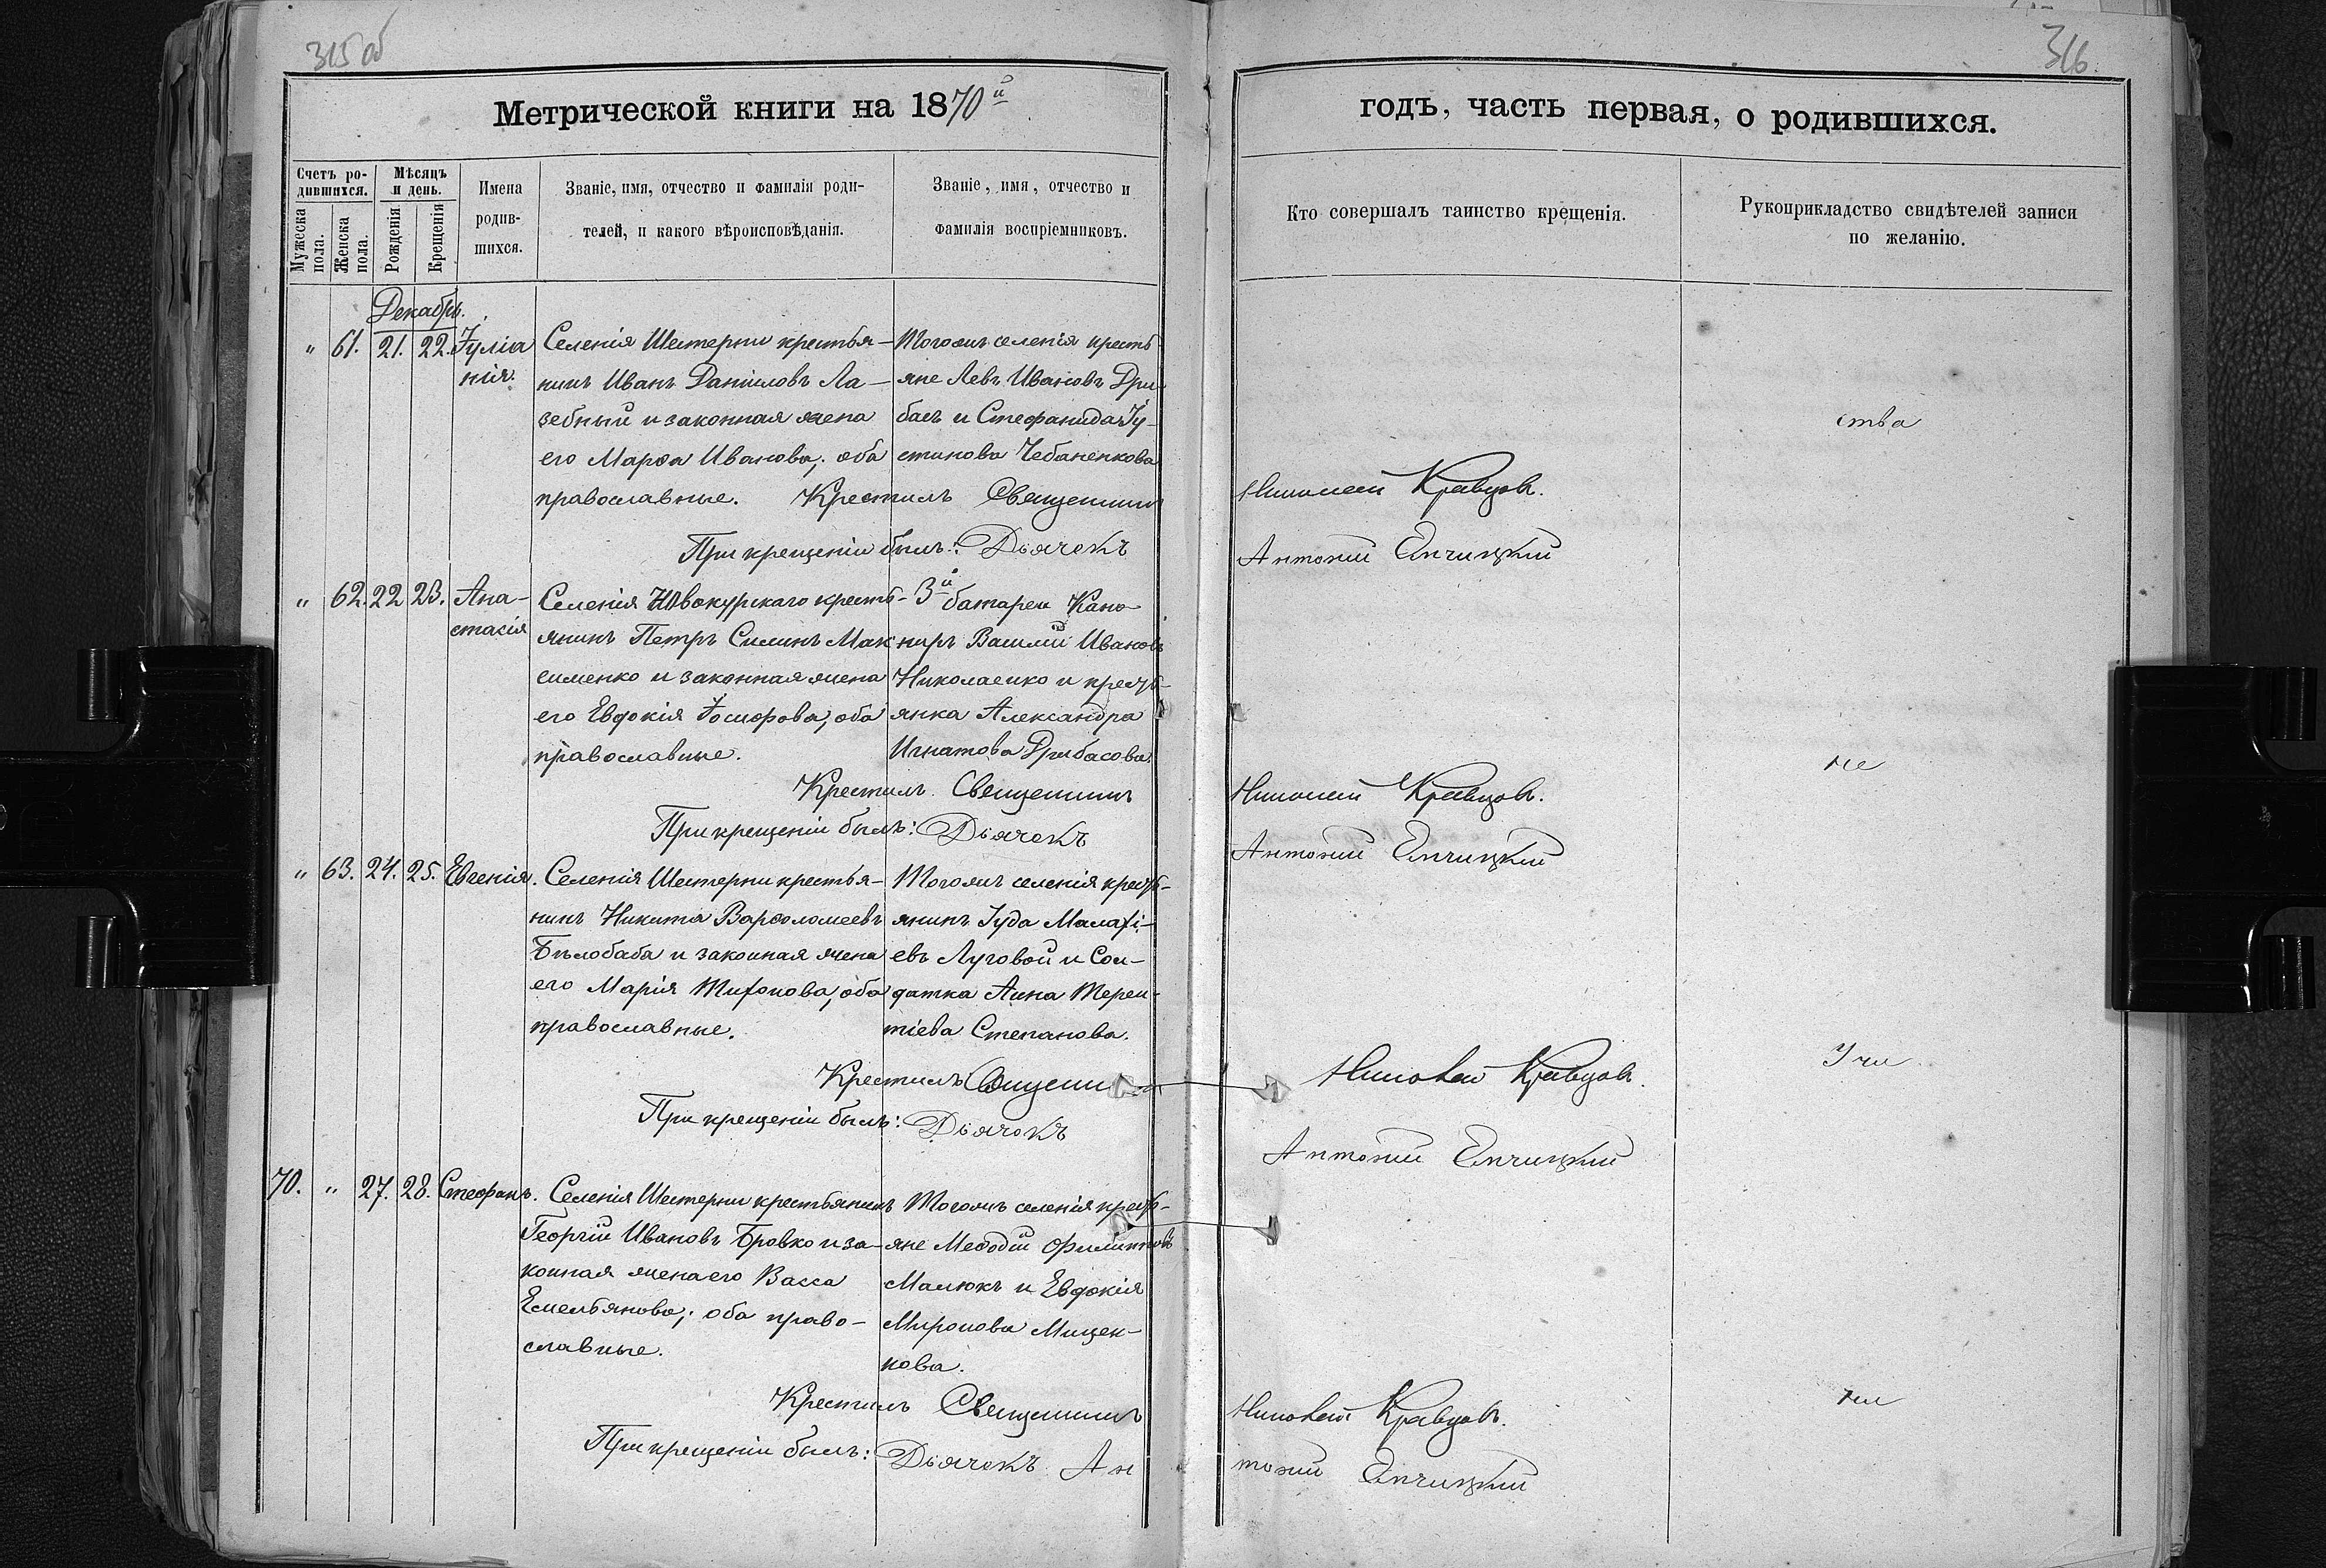 315 об
316.
Метрической книги на 1870й
годъ, часть первая, о родившихся.
Счетъ ро-
дившихся.
Мужеска пола.
Женска пола.
Мѣсяцъ
и день.
Рожденія
Крещенія
Имена
родив-
шихся.
Званіе, имя, отчество и фамилія роди-
телей, и какого вѣроисповѣданія.
Званіе, имя, отчество и
фамилія воспріемниковъ.
Кто совершалъ таинство крещенія.
Рукоприкладство свидѣтелей записи
по желанію.
Декабрь.
" 61. 21. 22. Іуліа
нія.
Селенія Шестерни крестья-
нинъ Иванъ Даніиловъ Ла-
зебный и законная жена
его Марѳа Иванова; оба
православные.
Тогожъ селенія кресть
яне Левъ Ивановъ Дри-
басъ и Стефанида Іу-
стинова Чебаненкова
Крестилъ Священникъ
Николай Кравцовъ.
При крещеніи былъ: Дьячекъ
Антоній
ства
" 62. 22 23. Ана-
стасія
Селенія Новокурскаго кресть-
янинъ Петръ Силинъ Мак
сименко и законная жена
его Евдокія Іосифова, оба
православные.
3й батареи Кано-
ниръ Василій Ивановъ
Николаенко и кресть-
янка Александра
Игнатова Дрибасова
Крестилъ Священникъ
Николай Кравцовъ.
При крещеніи былъ: Дьячекъ
Антоній
не
" 63. 24. 25. Евгенія.
Селенія Шестерни крестья-
нинъ Никита Варѳоломеевъ
Бѣлобаба и законная жена
его Марія Тифонова, оба
православные.
Тогожъ селенія кресть-
янинъ Іуда Малафі-
евъ Луговой и Сол-
датка Анна Терен-
тіева Степанова.
Крестилъ Священ
Николай Кравцовъ.
При крещеніи былъ: Дьячокъ
Антоній
70. " 27. 28. Стефанъ.
Селенія Шестерни крестьянинъ
Георгій Ивановъ Бровко и за-
конная жена его Васса
Емельянова; оба право-
славные.
Тогожъ селенія кресть-
яне Меѳодій Филипповъ
Малюкъ и Евдокія
Миронова Мищен-
кова.
Крестилъ Священникъ
Николай Кравцовъ.
При крещеніи былъ: Дьячекъ Ан
тоній